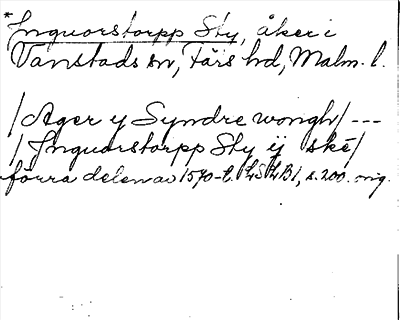 *Inguorstorpp Sty, åker i
Vanstads sn, Färs hd, Malm. l.
/Ager y Syndre wongh/ ---
/Inguorstorpp Sty ij skè/
förra delen av 1570-t. LSLB1, s. 200. orig.